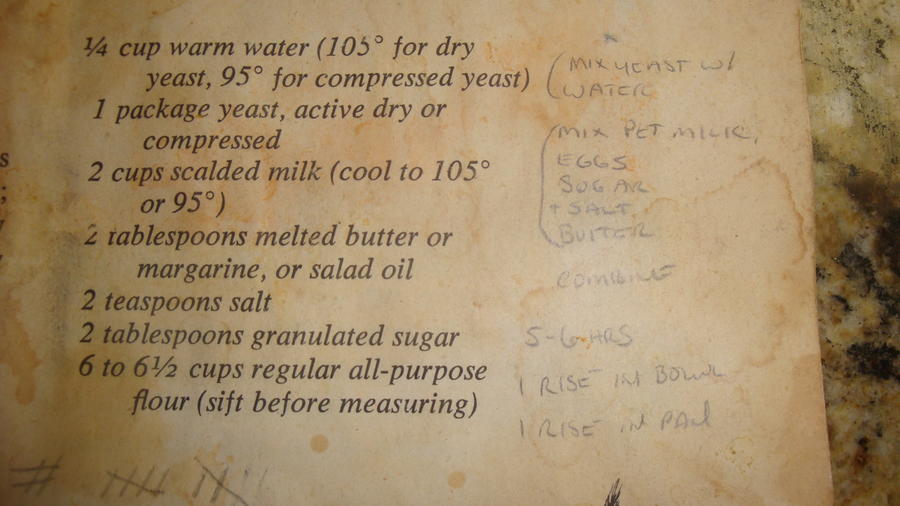 ¼ cup warm water (105° for dry
yeast, 95° for compressed yeast)
1 package yeast, active dry or
compressed
2 cups scalded milk (cool to 105°
or 95°)
2 tablespoons melted butter or
margarine, or salad oil
2 teaspoons salt
2 tablespoons granulated sugar
6 to 6½ cups regular all-purpose
flour (sift before measuring)
MIX YEAST W/
WATER
MIX PET MILK,
EGGS
SUGAR
+ SALT
BUTTER
COMBINE
5-6 HRS
1 RISE IN BOWL
1 RISE IN PAN
#